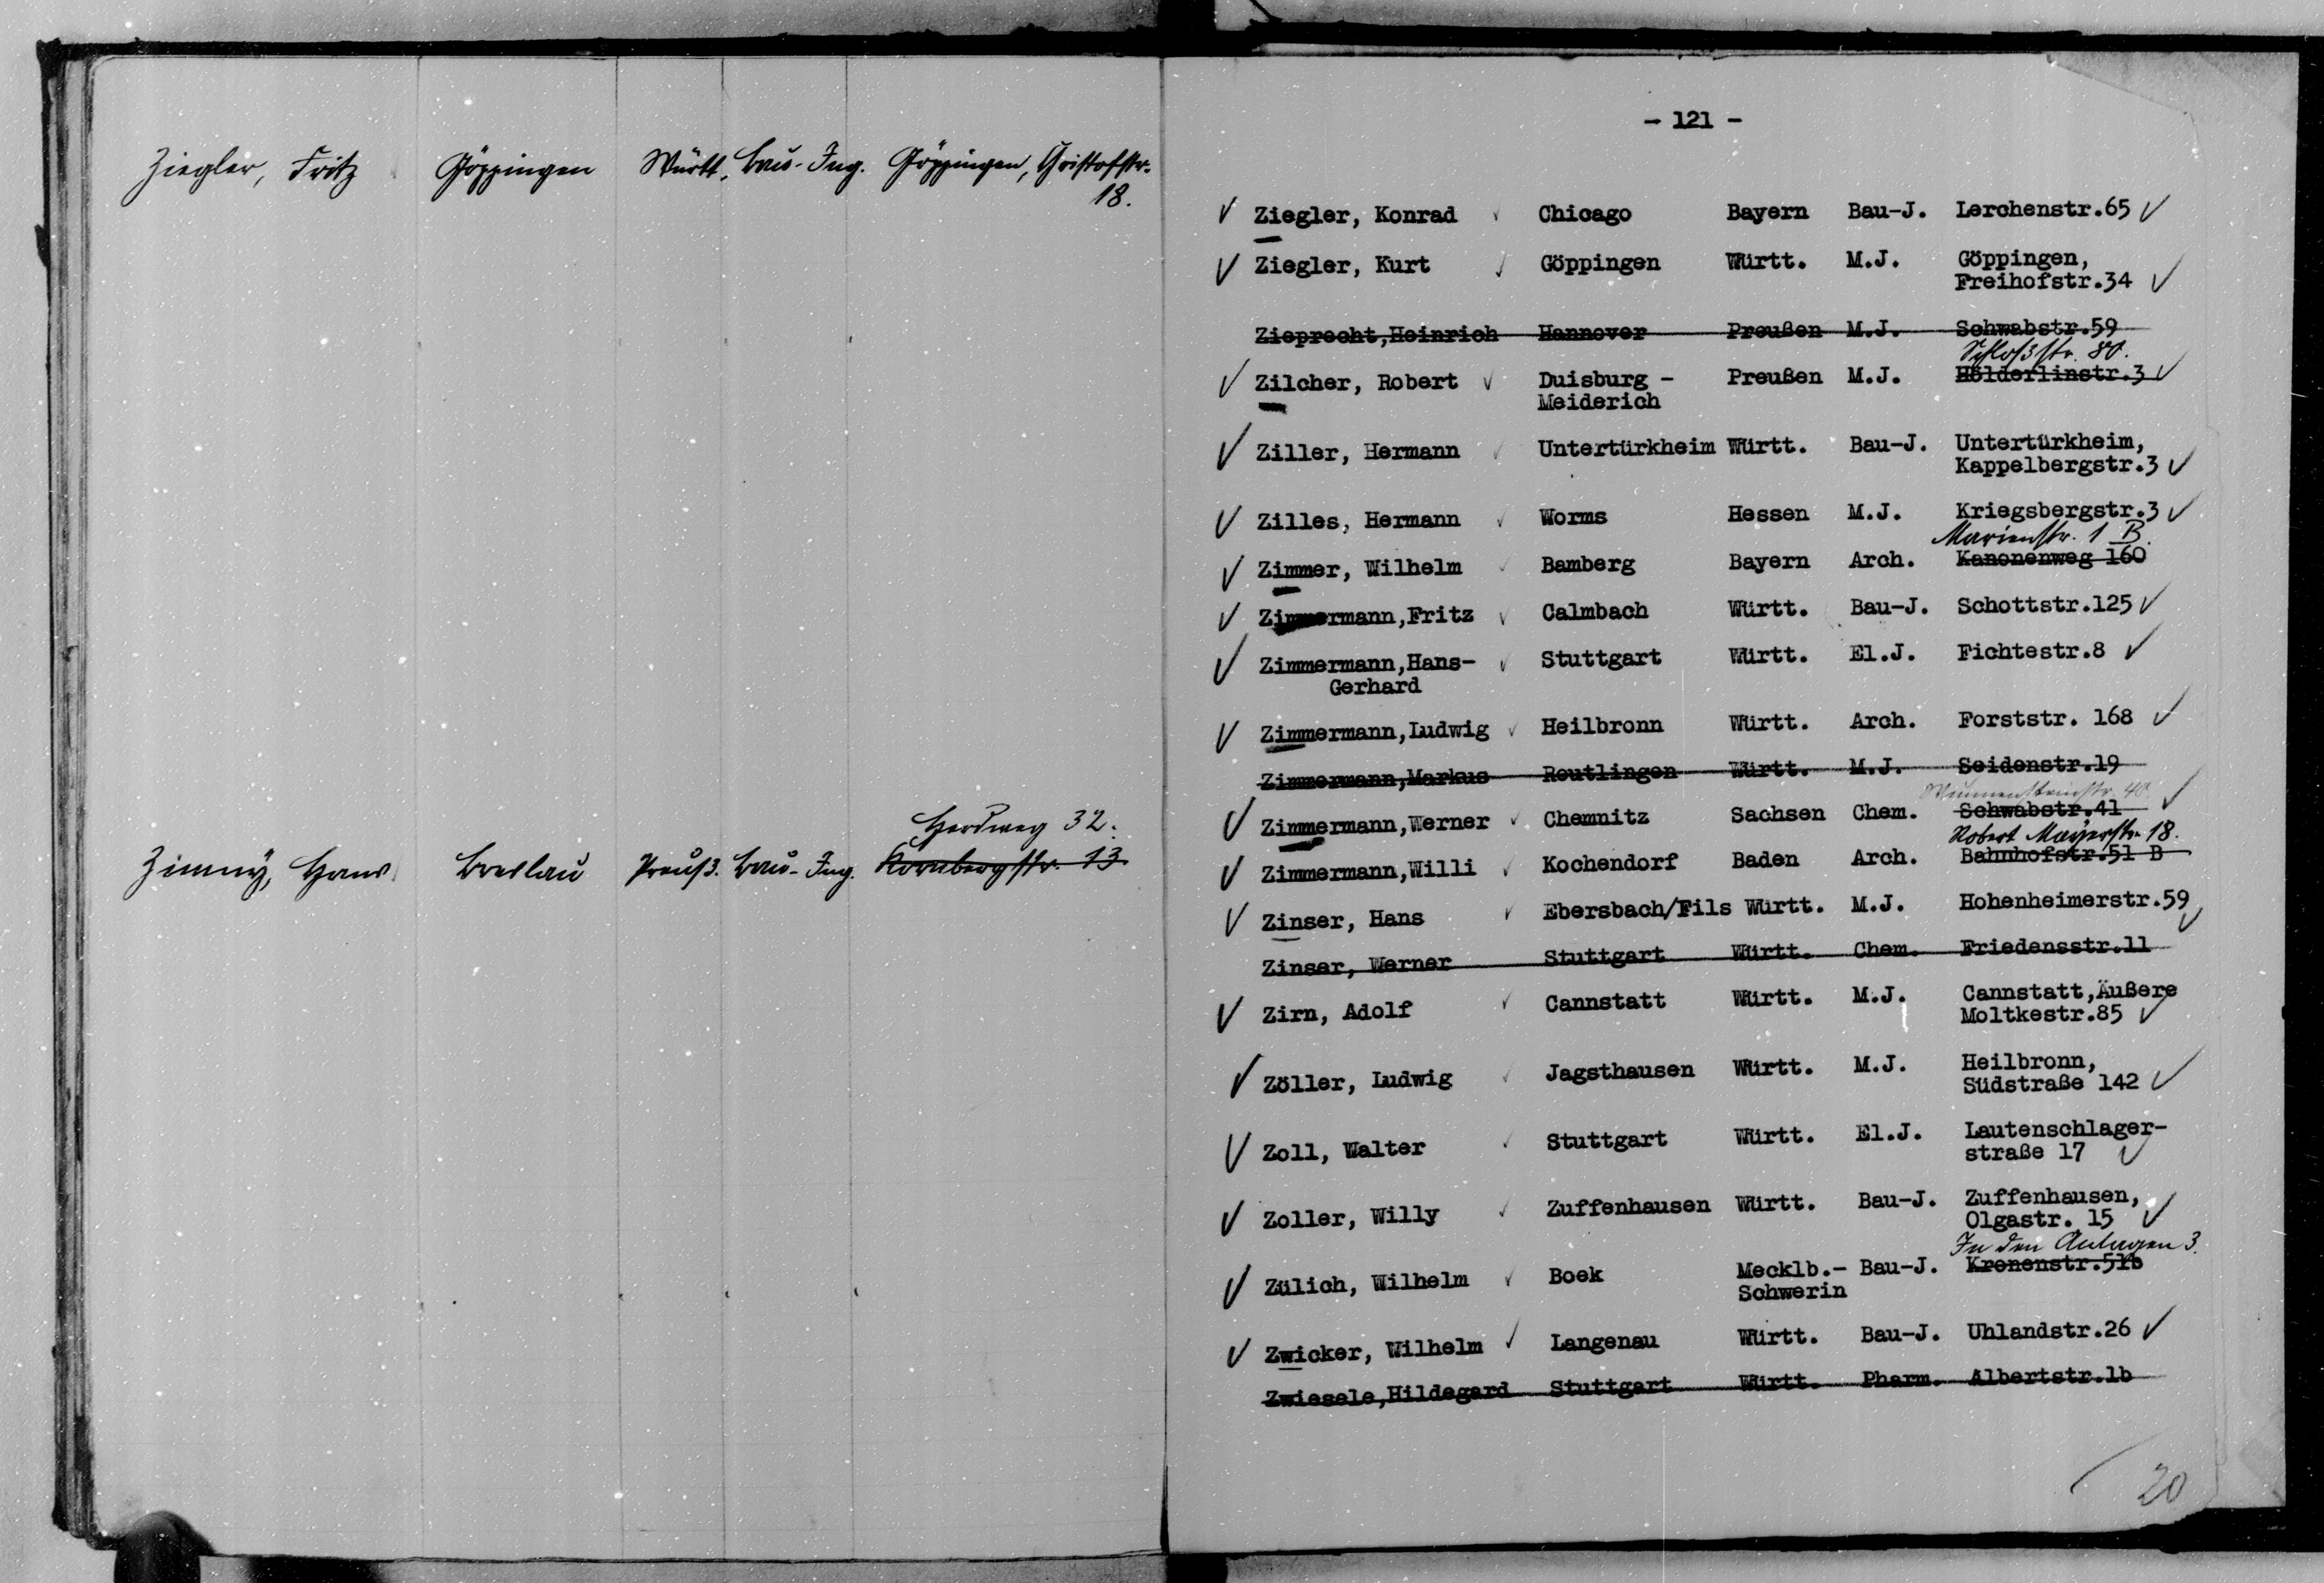 Ziegler, Fritz Göppingen Württ. Bau-Ing. Göppingen, Christofstr.
18.
Herdweg 32.
Zimny, Hans Breslau Preuß. Bau-Ing. Kornbergstr. 13
- 121 -
Ziegler, Konrad Chicago Bayern Bau-J. Lerchenstr.65
Ziegler, Kurt Göppingen Württ. M.J. Göppingen,
Freihofstr.34
Zieprecht,Heinrich Hannover Preußen M.J. Schwabstr.59
Schloßstr. 80.
Zilcher, Robert Duisburg - Preußen M.J. Hölderlinstr.3
Meiderich
Ziller, Hermann Untertürkheim Württ. Bau-J. Untertürkheim,
Kappelbergstr.3
Zilles, Hermann Worms Hessen M.J. Kriegsbergstr.3
Marienstr. 1 B.
Zimmer, Wilhelm Bamberg Bayern Arch. Kanonenweg 160
Zimmermann,Fritz Calmbach Württ. Bau-J. Schottstr.125
Zimmermann,Hans- Stuttgart Württ. El.J. Fichtestr.8
Gerhard
Zimmermann,Ludwig Heilbronn Württ. Arch. Forststr. 168
Zimmermann,Markus Reutlingen Württ. M.J. Seidenstr.19
40.
Zimmermann,Werner Chemnitz Sachsen Chem. Schwabstr.41
Robert Mayerstr. 18.
Zimmermann,Willi Kochendorf Baden Arch. Bahnhofstr.51 B
Zinser, Hans Ebersbach/Fils Württ. M.J. Hohenheimerstr.59
Zinser, Werner Stuttgart Württ. Chem. Friedensstr.11
Zirn, Adolf Cannstatt Württ. M.J. Cannstatt,Äußere
Moltkestr.85
Zöller, Ludwig Jagsthausen Württ. M.J. Heilbronn,
Südstraße 142
Zoll, Walter Stuttgart Württ. El.J. Lautenschlager-
straße 17
Zoller, Willy Zuffenhausen Württ. Bau-J. Zuffenhausen,
Olgastr. 15
In den Anlagen 3.
Zülich, Wilhelm Boek Mecklb.- Bau-J. Kronenstr.51b
Schwerin
Zwicker, Wilhelm Langenau Württ. Bau-J. Uhlandstr.26
Zwiesele,Hildegard Stuttgart Württ. Pharm. Albertstr.1b
20